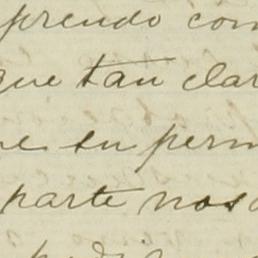 prendo com
que tan clar
e su perm
parte nos